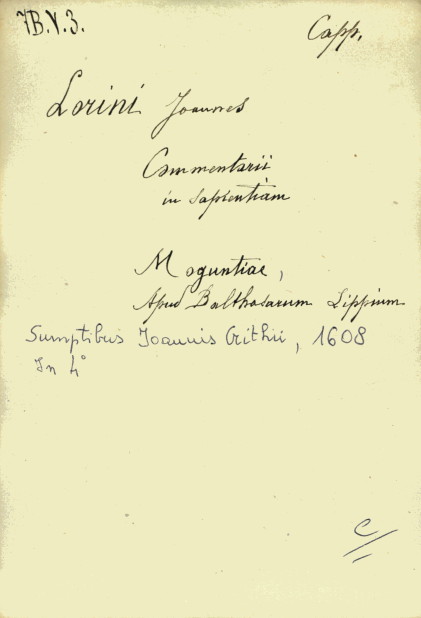 7B.V.3.
Capp.
Lorini Joannes
Commentarii
in Sapientiam
Moguntiae,
Apud Balthasarum Lippium
Sumptibus Joannis Crithii, 1608
In 4°
C